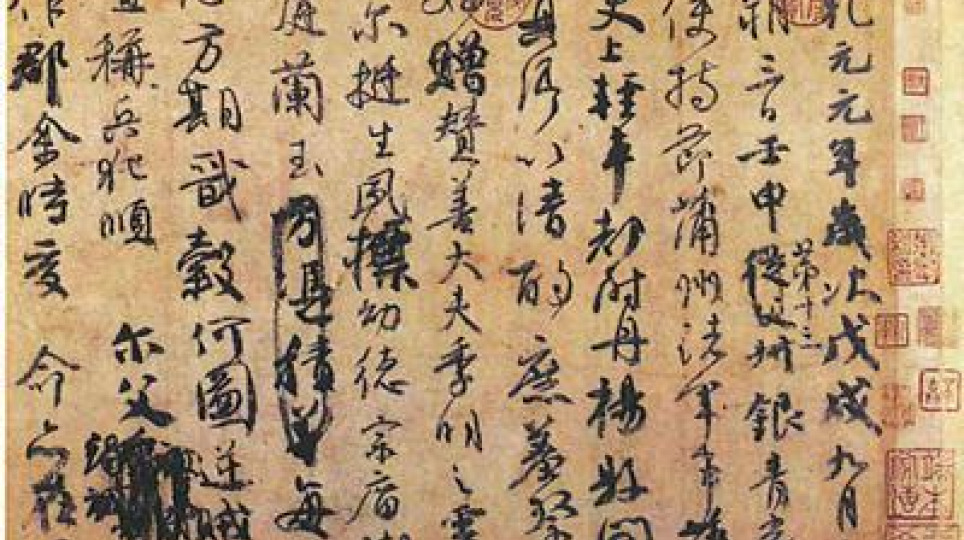 乾元元年歲次戊戌九月
朔三日壬申第十三從父叔銀青光
使持節蒲州諸軍事蒲
史上輕車都尉丹楊縣開
真卿以清酌庶羞祭
姪贈贊善大夫季明之靈
尔挺生夙標幼德宗廟瑚
庭蘭玉方憑積善每
心方期戩穀何圖逆賊
稱兵犯順 尔父
作郡余時受 命亦在